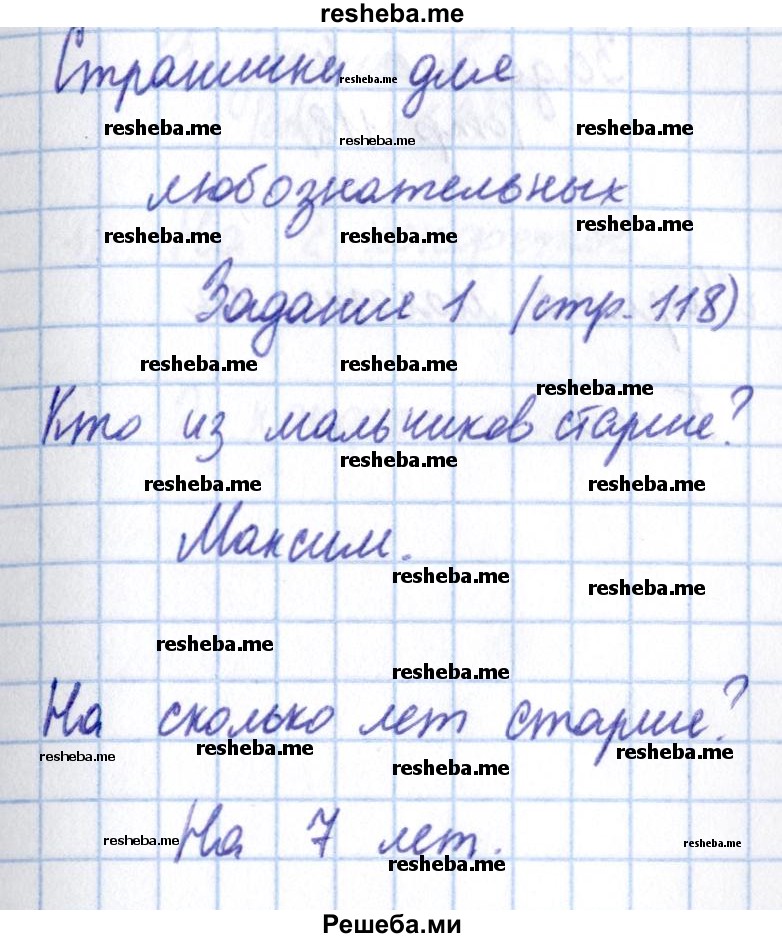 resheba.me
Странички для
resheba.me
resheba.me resheba.me
resheba.me
любознательных
resheba.me
resheba.me resheba.me
Задание 1 (стр. 118)
resheba.me resheba.me
resheba.me
Кто из мальчиков старше?
resheba.me
resheba.me resheba.me
Максим.
resheba.me
resheba.me
resheba.me
resheba.me
На сколько лет старше?
resheba.me resheba.me resheba.me
resheba.me
На 7 лет.
resheba.me resheba.me
resheba.me
Решеба.ми